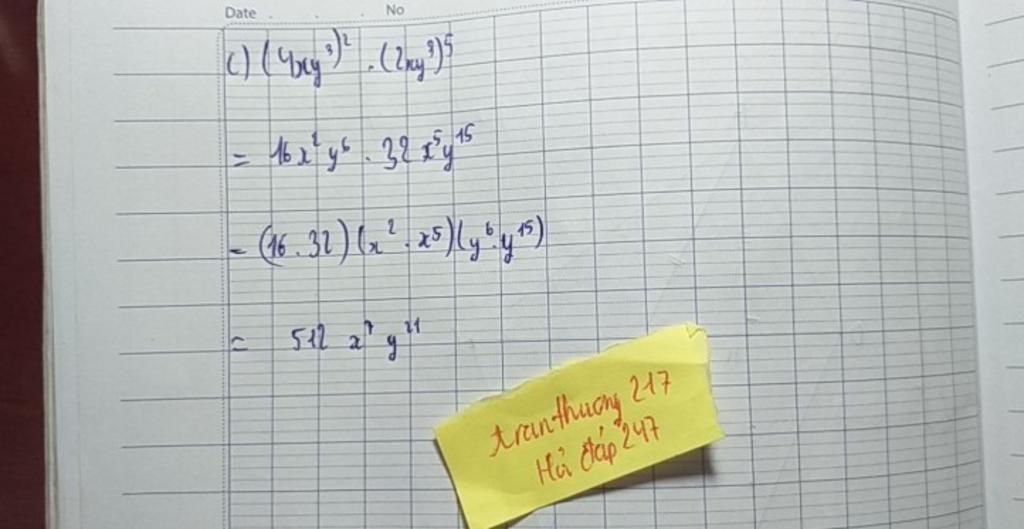 Date No
c) (4xy³)² . (2xy³)⁵
= 16x²y⁶ . 32x⁵y¹⁵
= (16.32)(x².x⁵)(y⁶.y¹⁵)
= 512 x⁷ y²¹
tranthuong 217
Hỏi đáp 247